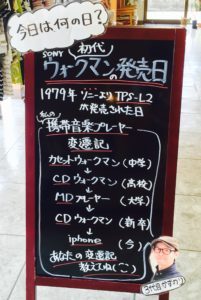 今日は何の日?
SONY 初代
ウォークマンの発売日
1979年 ソニーより TPS-L2
が発売された日
私の
携帯音楽プレーヤー
変遷記
カセットウォークマン (中学)
↓
CDウォークマン (高校)
↓
MDプレーヤー (大学)
↓
CDウォークマン (新卒)
↓
iphone (今)
あなたの変遷記
教えてね(
3代目かずの